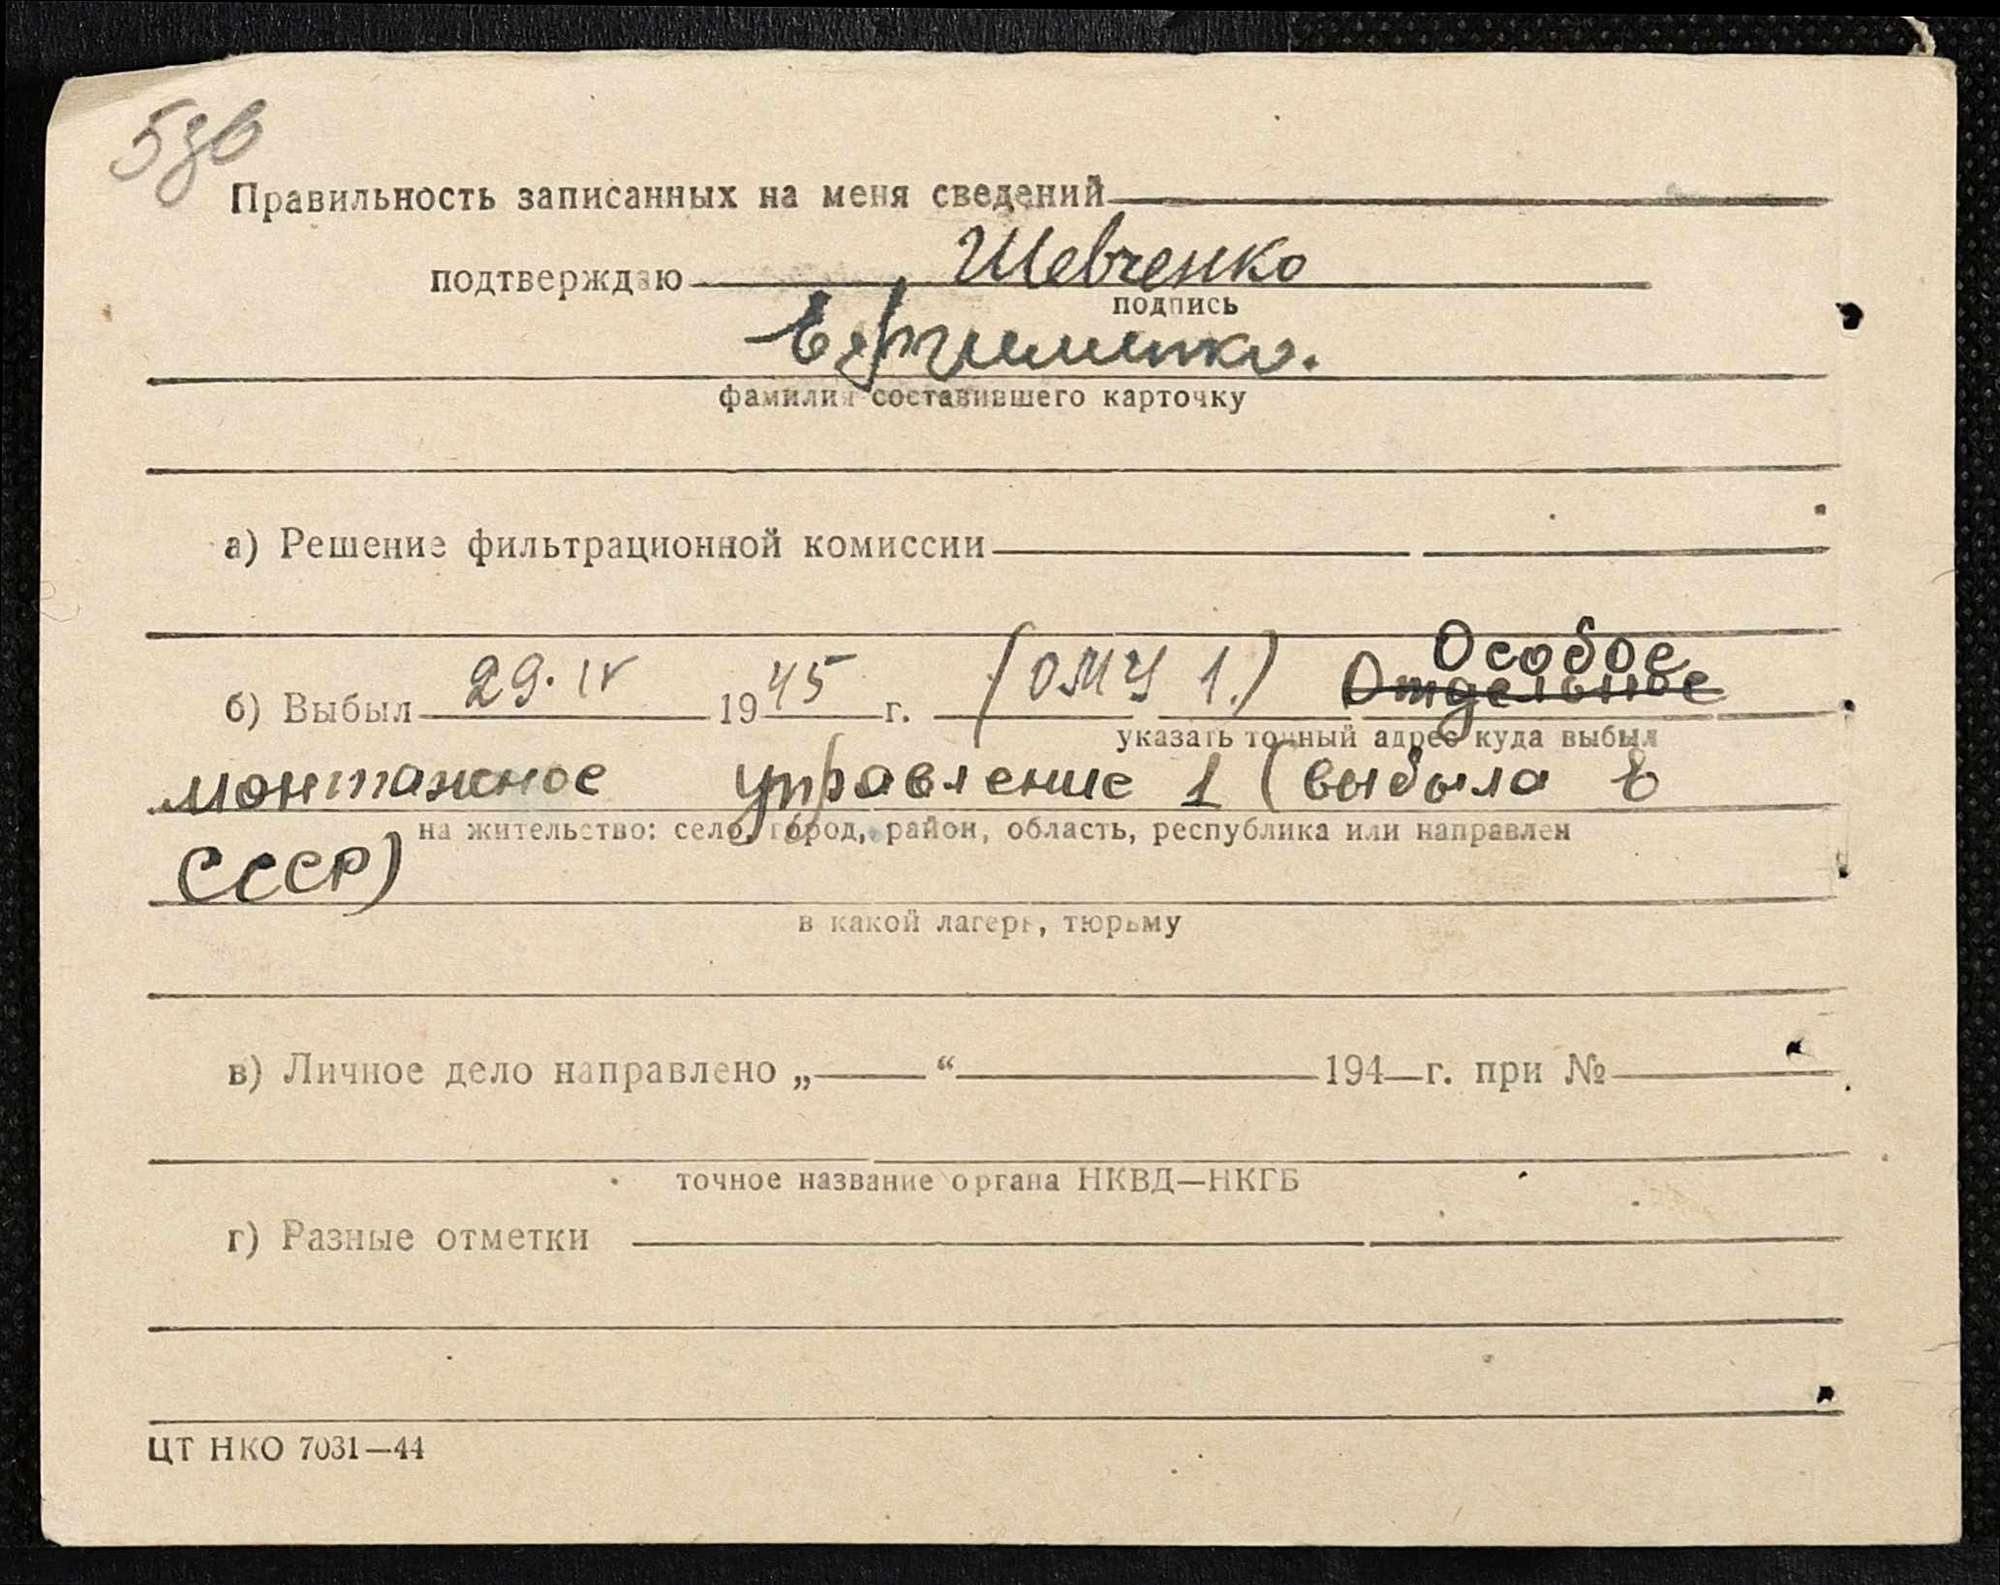 Правильность записанных на меня сведений
подтверждаю Шевченко
подпись
фамилия составившего карточку
а) Решение фильтрационной комиссии
Особое
б) Выбыл 29. IV 1945 г. (ОМУ 1.) Отдельное
указать точный адрес куда выбыл
монтажное управление 1 (выбыла в
на жительство: село, город, район, область, республика или направлен
СССР)
в какой лагерь, тюрьму
в) Личное дело направлено „ “ 194 г. при №
точное название органа НКВД—НКГБ
г) Разные отметки
ЦТ НКО 7031—44